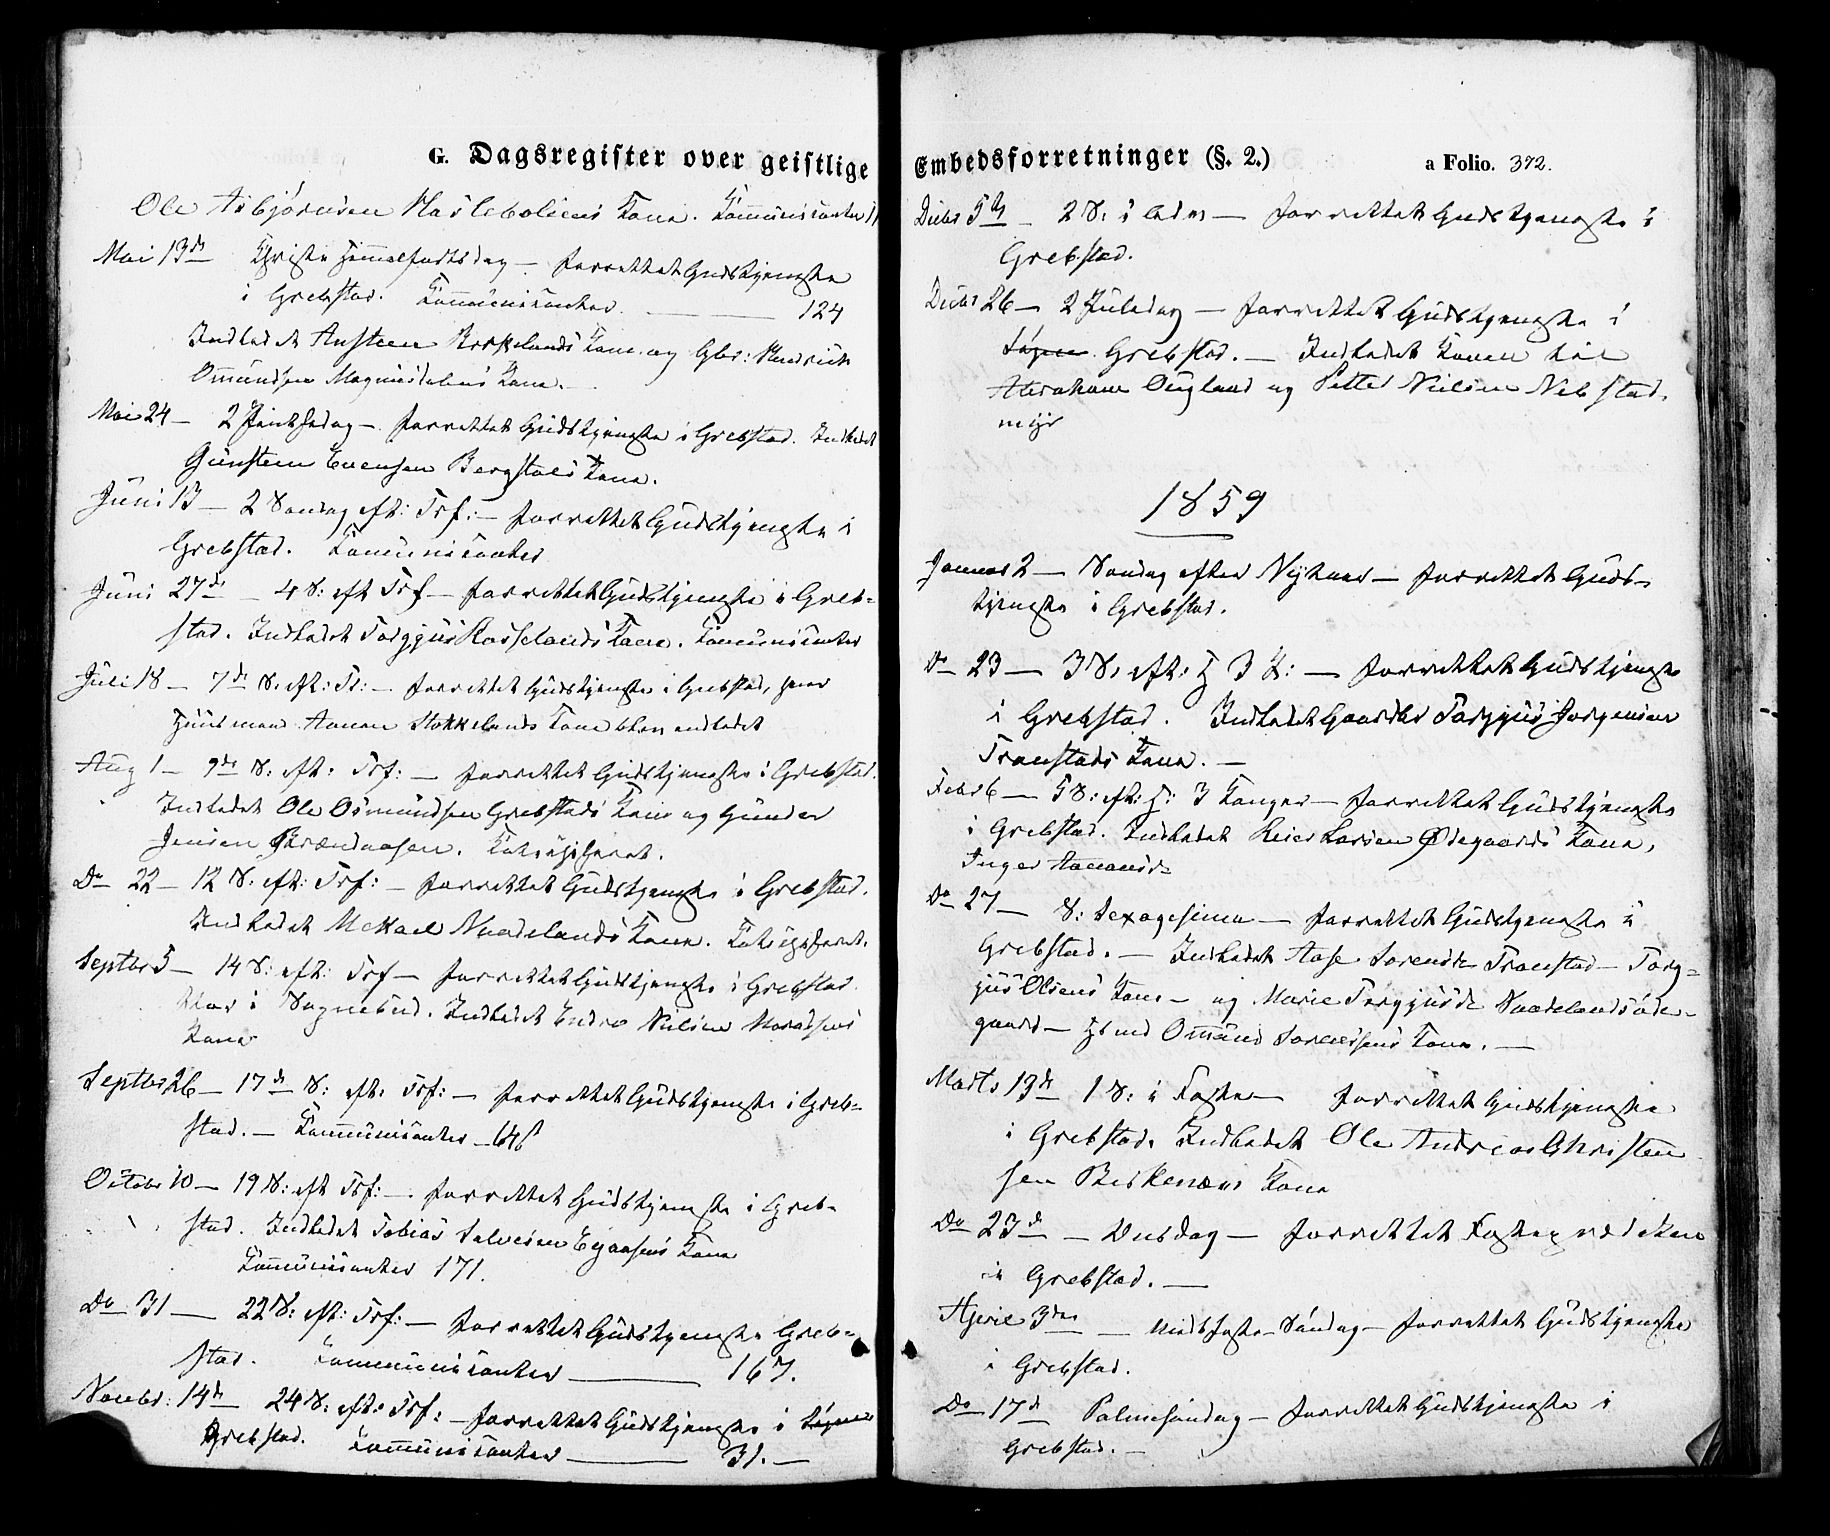 G. Dagsregister over geistlige
Ole Asbjørnsen Hasleboliens Kone. Communicanter
Mai 13de Christi Himmelfartsdag – forrettet Gudstjeneste
i Grebstad. Communicanter. — 124
Indledet Austeen Birkelands Kone og Gbr: Hendrich
Omundsen Magnesdalens Kone. –
Mai 24 – 2 Pintsedag – forrettet Gudstjeneste i Grebstad. Indledet
Gunsteen Evensen Bergstøls Kone.
Juni 13 – 2 Søndag eft: Trf: – forrettet Gudstjeneste i
Grebstad. Communicanter
Juni 27de – 4 S: eft Trf – forrettet Gudstjeneste i Greb-
stad. Indledet Torgjus Rosselands Kone. Communicanter
Juli 18 – 7de S. eft: Tr: – forrettet Gudstjeneste i Grebstad, hvor
Huusmand Aanen Stokkelands Kone blev indledet
Aug 1 – 9de S: eft: Trf: – forrettet Gudstjeneste i Grebstad.
Indledet Ole Osmundsen Grebstads Kone og Gunder
Jensen Brændaasen. Katechiseret.
Do 22 – 12 S: eft: Trf: – forrettet Gudstjeneste i Grebstad.
Indledet Mekael Naadelands Kone. Katechiseret.
Septbr 5 – 14 S: eft: Trf – forrettet Gudstjeneste i Grebstad.
Var i Sognebud. Indledet Endre Nielsen
Kone
Septbr 26 – 17de S: eft: Trf: – forrettet Gudstjeneste i Greb-
stad. – Communicanter –
Octobr 10 – 19 S: eft Trf: –. forrettet Gudstjeneste i Greb-
stad. Indledet Tobias Salvesen Egaasens Kone
Communicanter 171.
Do 31 – 22 S: eft: Trf: – forrettet Gudstjeneste Greb-
stad. Communicanter — 167.
Novbr: 14de 24 S: eft: Trf: – forrettet Gudstjeneste i Søgne
Grebstad. Communicanter — 31. –
Embedsforretninger (§. 2.) a Folio. 372.
Decbr 5te – 2 S: i Advn – forrettet Gudstjeneste i
Grebstad.
Decbr 26 – 2 Juledag – forrettet Gudstjeneste i
Søgne Grebstad. – Indledet Konen til
Abraham Øugland og Petter Nielsen Nebstad-
myr
1859
Januar 2 – Søndag efter Nytaar – forrettet Guds-
tjeneste i Grebstad.
Do 23 – 3 S: eft: H 3 K: – forrettet Gudstjeneste
i Grebstad. Indledet Gaardbr Torgjus Jørgensen
Tronstads Kone. –
Febr 6 – 5 S: eft: H: 3 Konger – forrettet Gudstjeneste
i Grebstad. Indledet Reier Larsen Ødegaards Kone,
Inger Aanensdr
Do 27 – S: Sexagesima – forrettet Gudstjeneste i
Grebstad. – Indledet Aase Sørensdr Tronstad – Torg-
jus Olsens Kone – og Marie Torgjusdr Naadelandsøde-
gaard – Hsmd Omund Sørensens Kone. –
Marts 13de 1 S: i Faste – forrettet Gudstjeneste
i Grebstad. Indledet Ole Andreas Christen
sen Birkenæs Kone
Do 23de – Onsdag – forrettet Fasteprædiken
i Grebstad. –
April 3die – Midfaste-Søndag – forrettet Gudstjeneste
i Grebstad.
Do 17de Palmesøndag – forrettet Gudstjeneste i
Grebstad. –